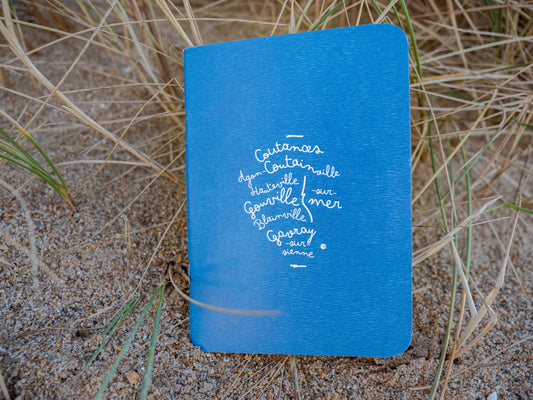 Coutances
Agon-Coutainville
Hauteville -sur-
Gouville mer
Blainville
Gavray
-sur-
sienne